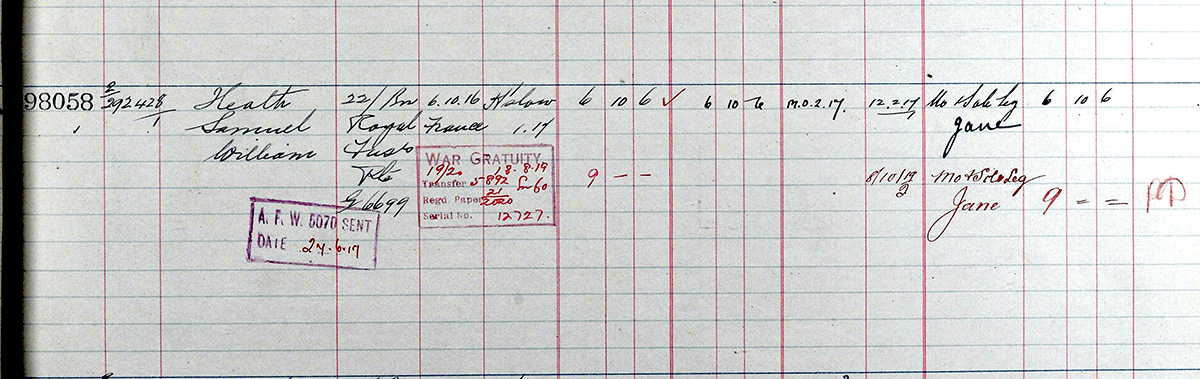 98058 2/292428 Heath 22/Bn 6.10.16 H'slow 6 10 6 ✓ 6 10 6 M.O.2.17. 12.2.17 Mo & Sole Leg 6 10 6
1 Samuel Royal France 1.17 Jane
William Fusrs
WAR GRATUITY
Pte 19/20 18.8.19 9 – – 8/10/19 Mo & Sole Leg
Transfer 5892 £ 60 2 Jane 9 = =
G 6699 Regd. Paper 21/2020
Serial No. 12727.
A. F. W. 5070 SENT
DATE 27.6.19